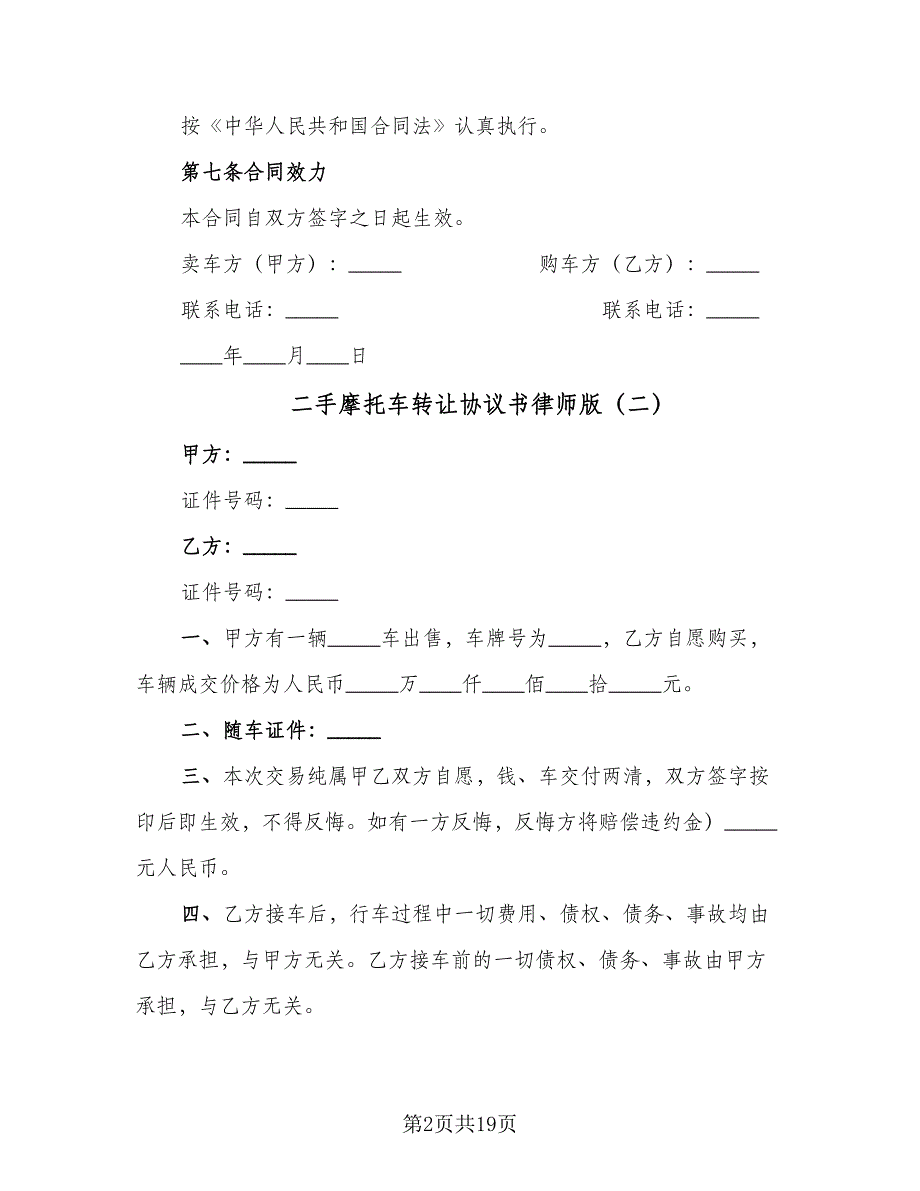 按《中华人民共和国合同法》认真执行。
第七条合同效力
本合同自双方签字之日起生效。
卖车方（甲方）：_____ 购车方（乙方）：_____
联系电话：_____ 联系电话：_____
____年____月____日
二手摩托车转让协议书律师版（二）
甲方：_____
证件号码：_____
乙方：_____
证件号码：_____
一、甲方有一辆_____车出售，车牌号为_____，乙方自愿购买，
车辆成交价格为人民币_____万____仟____佰____拾_____元。
二、随车证件：_____
三、本次交易纯属甲乙双方自愿，钱、车交付两清，双方签字按
印后即生效，不得反悔。如有一方反悔，反悔方将赔偿违约金）_____
元人民币。
四、乙方接车后，行车过程中一切费用、债权、债务、事故均由
乙方承担，与甲方无关。乙方接车前的一切债权、债务、事故由甲方
承担，与乙方无关。
第2页共19页